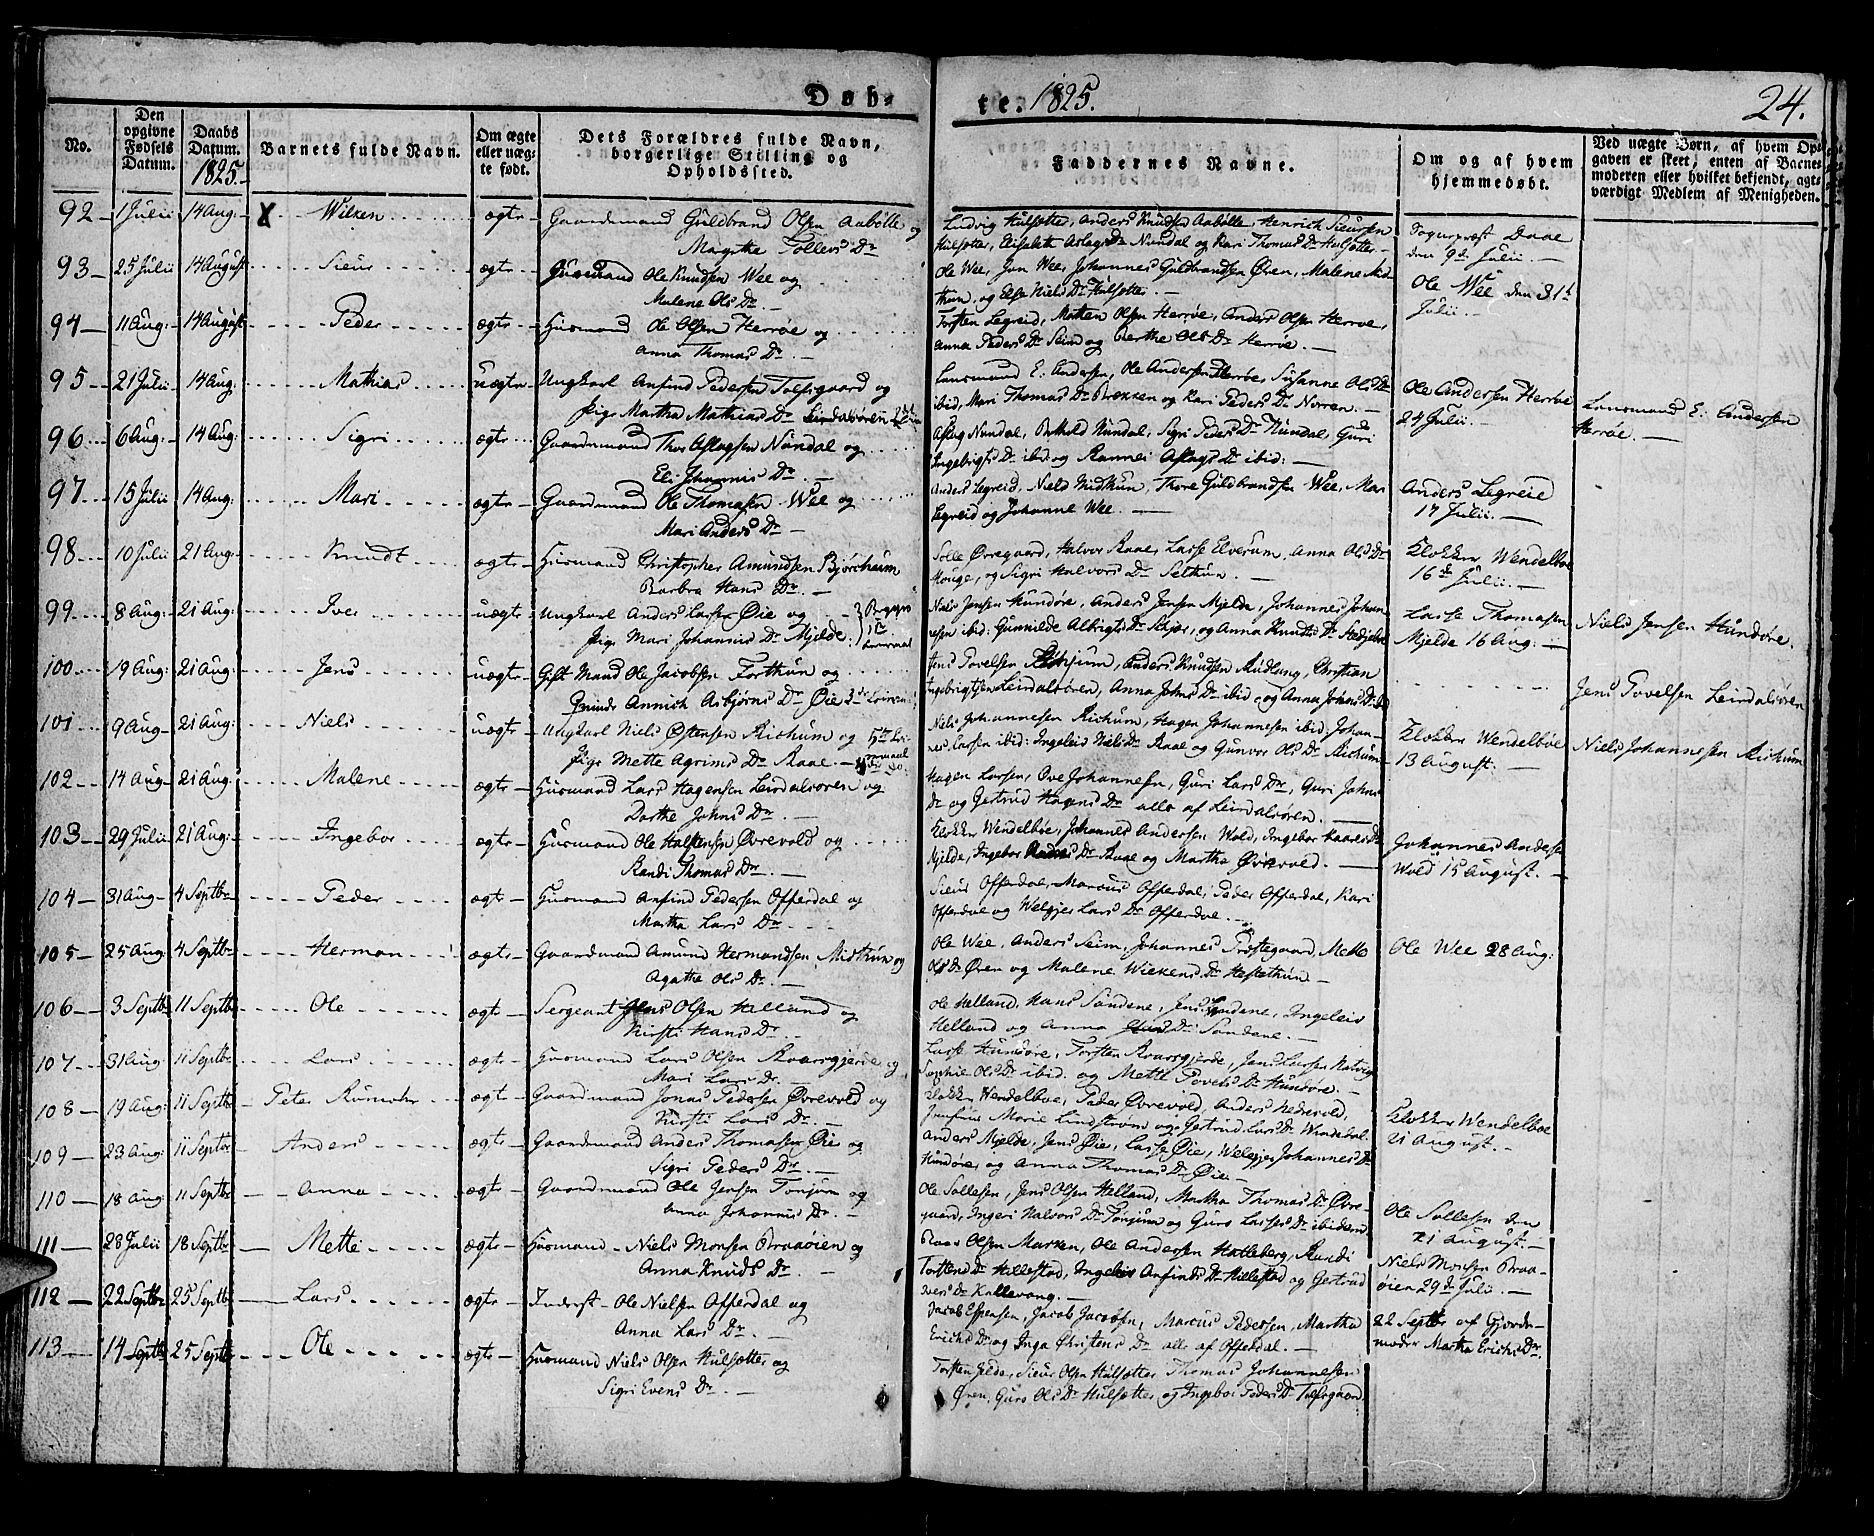 Døb-
te. 1825.
24.
No.
Den opgivne Fødsels Datum.
Daabs Datum. 1825.
Barnets fulde Navn.
Om ægte eller uæg- te født.
Dets Forældres fulde Navn, borgerlige Stilling og Opholdssted.
Faddernes Navne.
Om og af hvem hjemmedøbt.
Ved uægte Børn, af hvem Op- gaven er skeet, enten af Barnets moderen eller hvilket bekjendt, agt- værdigt Medlem af Menigheden.
92 1 Julii 14 Aug: X Wilken ægte Gaardmand Guldbrand Olsen Aabølle og
Magrthe Tollevs Dr
Ludvig Hulsøtter, Anders Knudsen Aabølle, Henrich Sieursen
Hulsøtter, Elisabeth Aslags Dr Nundal og Kari Thomas Dr Hulsøtter
Sognepræst Daae
den 9de Julii
93 25 Julii 14 August Sieur ægte Huusmand Ole Knudsen Wee og
Malene Ols Dr
Ole Wee, Jon Wee, Johannes Guldbrandsen Øren, Malene Mid
thun, og Else Niels Dr Hulsøtter
Ole Wee den 31te
Julii
94 11 Aug: 14 August Peder ægte Huusmand Ole Olsen Herrøe og
Anna Thomas Dr
Torsten Legreid, Motten Olsen Herrøe, Anders Olsen Herrøe,
Anna Peders Dr Seim og Berthe Ols Dr Herrøe
95 21 Julii 14 Aug: Mathias uægte Ungkarl Anfind Pedersen Tolfsgaard og
Pige Martha Mathias Dr Leirdalsøren
Lensmand E: Andersen, Ole Andersen Herrøe, Susanne Ols Dr
ibid, Mari Thomas Dr Brekken og Kari Peders Dr Norren
Ole Andersen Herrøe
24 Julii
Lensmand E: Andersen
Herrøe
96 6 Aug: 14 Aug: Sigri ægte Gaardmand Thor Aslagsen Nundal og
Eli Johannis Dr
Aslag Nundal, Bothold Nundal, Sigri Peders Dr Nundal, Guri
Ingebrigts Dr ibid: og Rannei Aslags Dr ibid:
97 15 Julii 14 Aug: Mari ægte Gaardmand Ole Thomasen Wee og
Mari Anders Dr
Anders Legreid, Niels Midthun, Thore Guldbrandsen Wee, Mari
Legreid og Johanne Wee
Anders Legreie
17 Julii
98 10 Julii 21 Aug: Knudt ægte Huusmand Christopher Amundsen Bjørchum
Barbra Hans Dr
Solle Øvregaard, Halvor Raae, Lasse Elverum, Anna Ols Dr
Houge, og Sigri Halvors Dr Selthun
Klokker Wendelboe
16de Julii
99 8 Aug: 21 Aug: Iver uægte Ungkarl Anders Larsen Øie og
Pige Mari Johannis Dr Mjelde
Niels Jensen Hundøre, Anders Jensen Mjelde, Johannes Johan
nesen ibid: Gunnilde Albrigts Dr Skjær, og Anna Knuds Dr
Lasse Thomasen
Mjelde 16 Aug:
Niels Jensen Hundøre.
100 19 Aug: 21 Aug: Jens uægte Gift Mand Ole Jacobsen Forthun og
Qvinde Annich Asbjørns Dr Øie
Jens Povelsen, Anders Knudsen Rudlang, Christian
Ingebrigtsen Leirdalsøren, Anna Johns Dr ibid og Anna Johns Dr ib
Jens Povelsen Leirdalsøren
101 9 Aug: 21 Aug: Niels uægte Ungkarl Niels Østensen Richum og
Pige Mette Agrims Dr Raae
Niels Johannesen Richum, Hagen Johannesen ibid, Johan-
nes Larsen ibid: Ingeleis Niels Dr Raae og Gunvor Ols Dr Richum
Klokker Wendelboe
13 August.
Niels Johannesen Richum
102 14 Aug: 21 Aug: Malene ægte Huusmand Lars Hagensen Leirdalsøren og
Dorthe Johns Dr
Hagen Larsen, Ove Johannesen, Guri Lars Dr, Guri Johns
Dr og Gertrud Hagens Dr alle af Leirdalsøren.
103 29 Julii 21 Aug: Ingebor ægte Huusmand Ole Halstensen Øvrevold og
Randi Thomas Dr
Klokker Wendelboe, Johannes Andersen Wold, Ingebor Kaares Dr
Mjelde, Ingebor Dr Raae og Martha Øvrevold.
Johannes Andersen
Wold 15 August.
104 31 Aug: 4 Septbr Peder ægte Huusmand Anfind Pedersen Offerdal og
Martha Lars Dr
Sieur Offerdal, Marcus Offerdal, Peder Offerdal, Kari
Offerdal og Welgjer Lars Dr Offerdal.
105 25 Aug: 4 Septbr Herman ægte Gaardmand Amund Hermandsen Midthun og
Agathe Ols Dr
Ole Wee, Anders Seim, Johannes Prestegaard, Mette
Ols Dr Øren og Malene Wiekens Dr Hestethun.
Ole Wee 28 Aug:
106 3 Septbr 11 Septbr Ole ægte Sergeant Jens Olsen Helland og
Kirsti Hans Dr
Ole Helland, Hans Sandene, Jens Sandene, Ingeleis
Helland og Anna Dr Sandene.
107 31 Aug: 11 Septbr Lars ægte Huusmand Lars Olsen Kvarsgjerde og
Mari Lars Dr
Lasse Hundøre, Torsten Kvarsgjerde, Jens Larsen
Sophie Ols Dr ibid og Mette Povels Dr Hundøre.
108 19 Aug: 11 Septbr Peter ægte Gaardmand Jonas Pedersen Øvrevold og
Kirsti Lars Dr
Klokker Wendelboe, Peder Øvrevold, Anders Nedrevold,
Josefine Marie Lindstrøm og Gertrud Lars Dr Wendelboe.
Klokker Wendelboe
21 August.
109 23 Aug: 11 Septbr Anders ægte Gaardmand Anders Thomasen Øie og
Sigri Peders Dr
Anders Mjelde, Jens Øie, Lasse Øie, Welgjer Johannes Dr
Hundøre, og Anna Thomas Dr Øie
110 18 Aug: 11 Septbr Anna ægte Gaardmand Ole Jensen Tønjum og
Anna Johannis Dr
Ole Sollesen, Jens Olsen Helland, Martha Thomas Dr Øvre-
gaard, Ingeri Halvors Dr Tønjum og Guro Lasses Dr ibidem
Ole Sollesen den
21 August.
111 28 Julii 18 Septbr Mette ægte Huusmand Niels Monsen Braaøien og
Anna Knuds Dr
Roar Olsen Marken, Ole Andersen Hatleberg, Randi
Torstens Dr Hillestad, Ingeleis Anfinds Dr Hillestad og Gertrud
Ivers Dr Kallevang.
Niels Monsen Braa-
øien 29de Julii.
112 22 Septbr 25 Septbr Lars ægte Inderst Ole Nielsen Offerdal og
Anna Lars Dr
Jacob Espensen, Jacob Jacobsen, Marcus Pedersen, Martha
Erichs Dr og Inga Christens Dr alle af Offerdal.
22 Septbr af Gjorde-
moder Martha Erichs Dr.
113 14 Septbr 25 Septbr Ole ægte Huusmand Niels Olsen Hulsøtter og
Sigri Evens Dr
Torsten Gjelde, Sieur Olsen Hulsøtter, Thomas Johannesen
Øren, Guro Ols Dr Hulsøtter, og Ingebor Peders Dr Tolfsgaard.